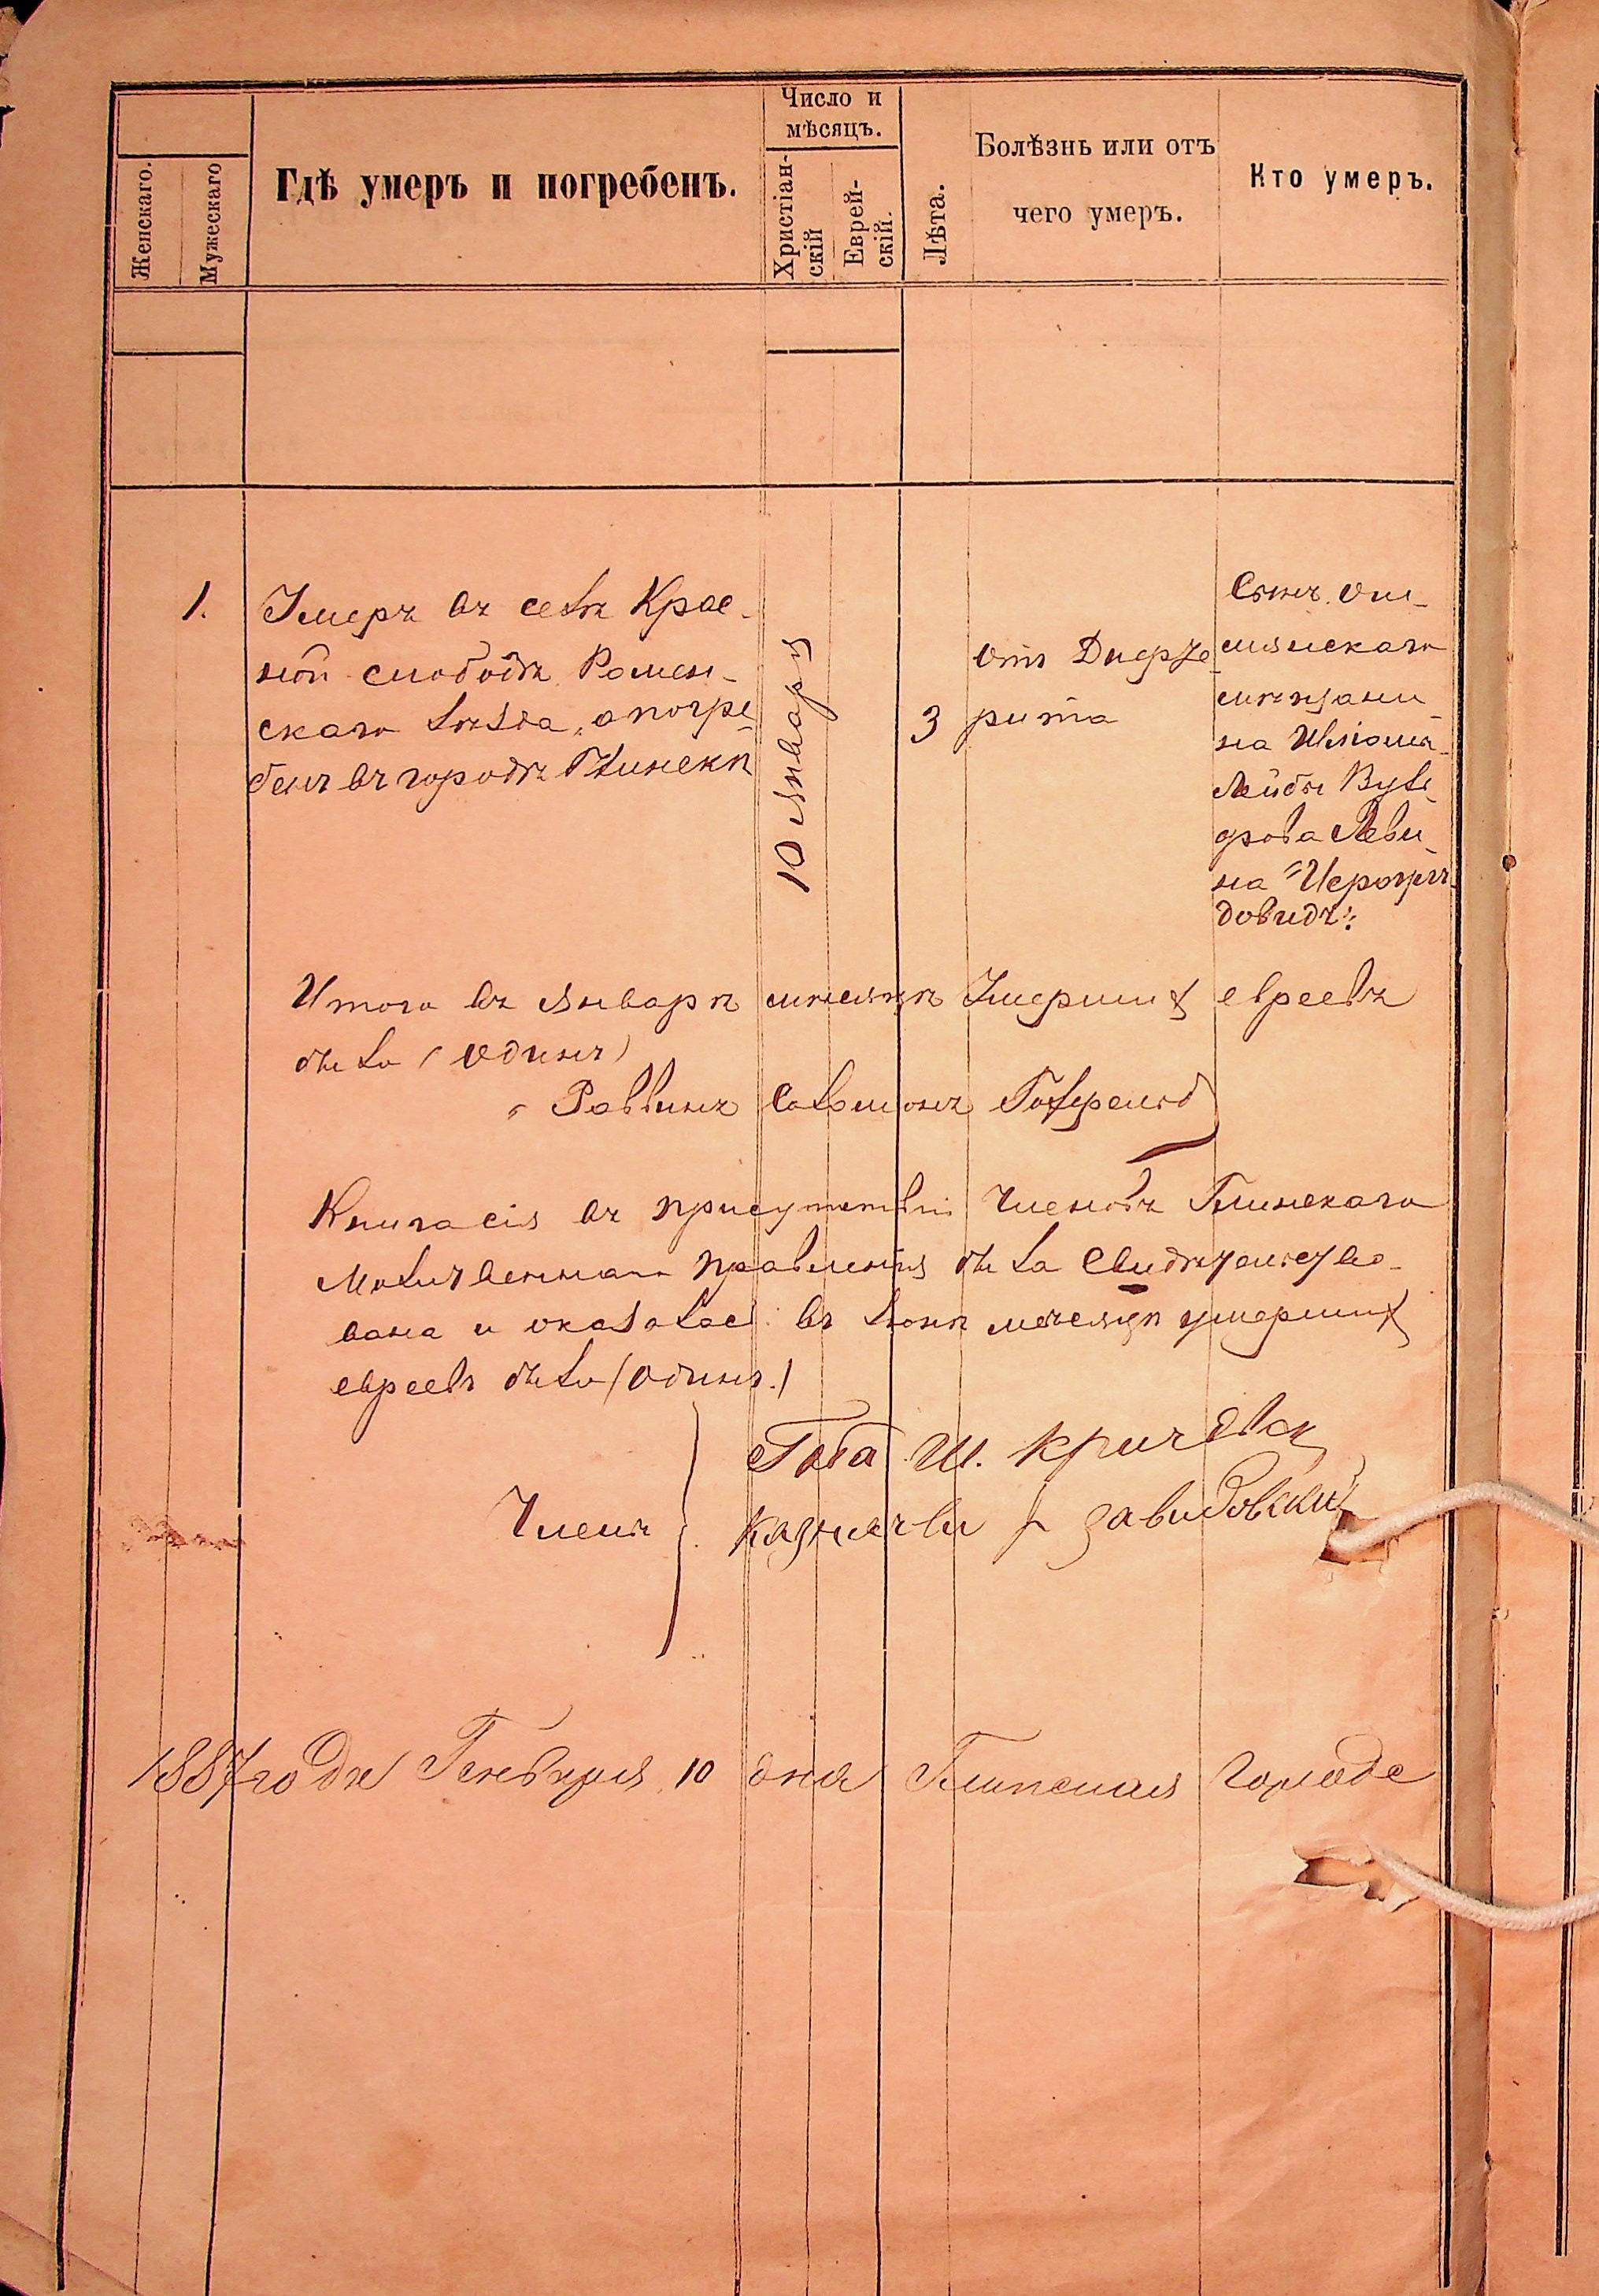 Число и
мѣсяцъ.
Женскаго.
Мужескаго
Гдѣ умеръ и погребенъ.
Христіан-
скій
Еврей-
скій.
Лѣта.
Болѣзнь или отъ
чего умеръ.
Кто умеръ.
1.
Умеръ въ селѣ Крас-
ной слободѣ Ромен-
скаго уѣзда, а погре-
бенъ въ городѣ Глинскѣ
10 Января
3
отъ
рита
Сынъ Ош-
мянскаго
мѣщани-
на
Лейбы
Леви-
на
Довидъ
Итого въ Январѣ мѣсяцѣ Умершихъ евреевъ
было (одинъ)
Раввинъ Соломонъ
Книга сія въ присутствіи Членовъ Глинскаго
Молитвеннаго правленія была Свидѣтельство-
вана и оказалось въ мѣсяцѣ умершихъ
евреевъ было (Одинъ.)
Члены
Габа Ш. Кричевск
Казначеи Завидовский
1887 года Генваря 10 дня Глинская городе